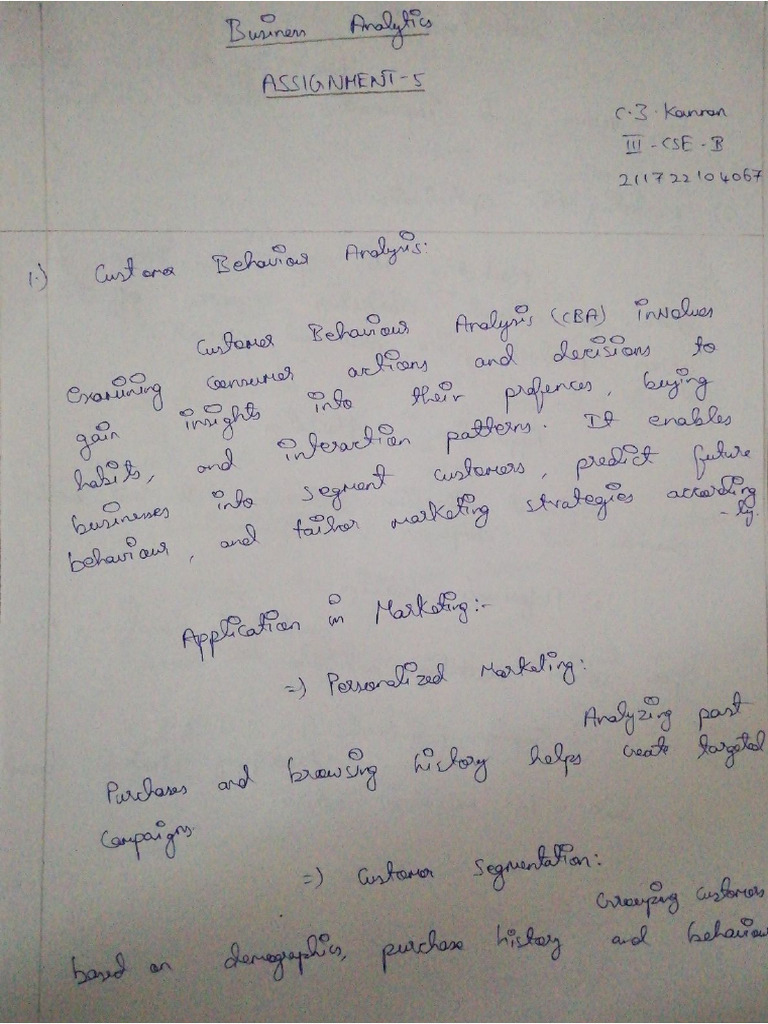 Business Analytics
ASSIGNMENT-5
C.J. Kannan
III - CSE - B
211722104067
1.) Customer Behaviour Analysis:
Customer Behaviour Analysis (CBA) involves
examining consumer actions and decisions to
gain insights into their prefences, buying
habits, and interaction patterns. It enables
businesses into segment customers, predict future
behaviour, and tailor marketing strategies according
-ly.
Application in Marketing:-
=) Personalized Marketing:
Analyzing past
Purchases and browsing history helps create targeted
Campaigns.
=) Customer Segmentation:
Grouping customers
based on demographics, purchase history and behaviour